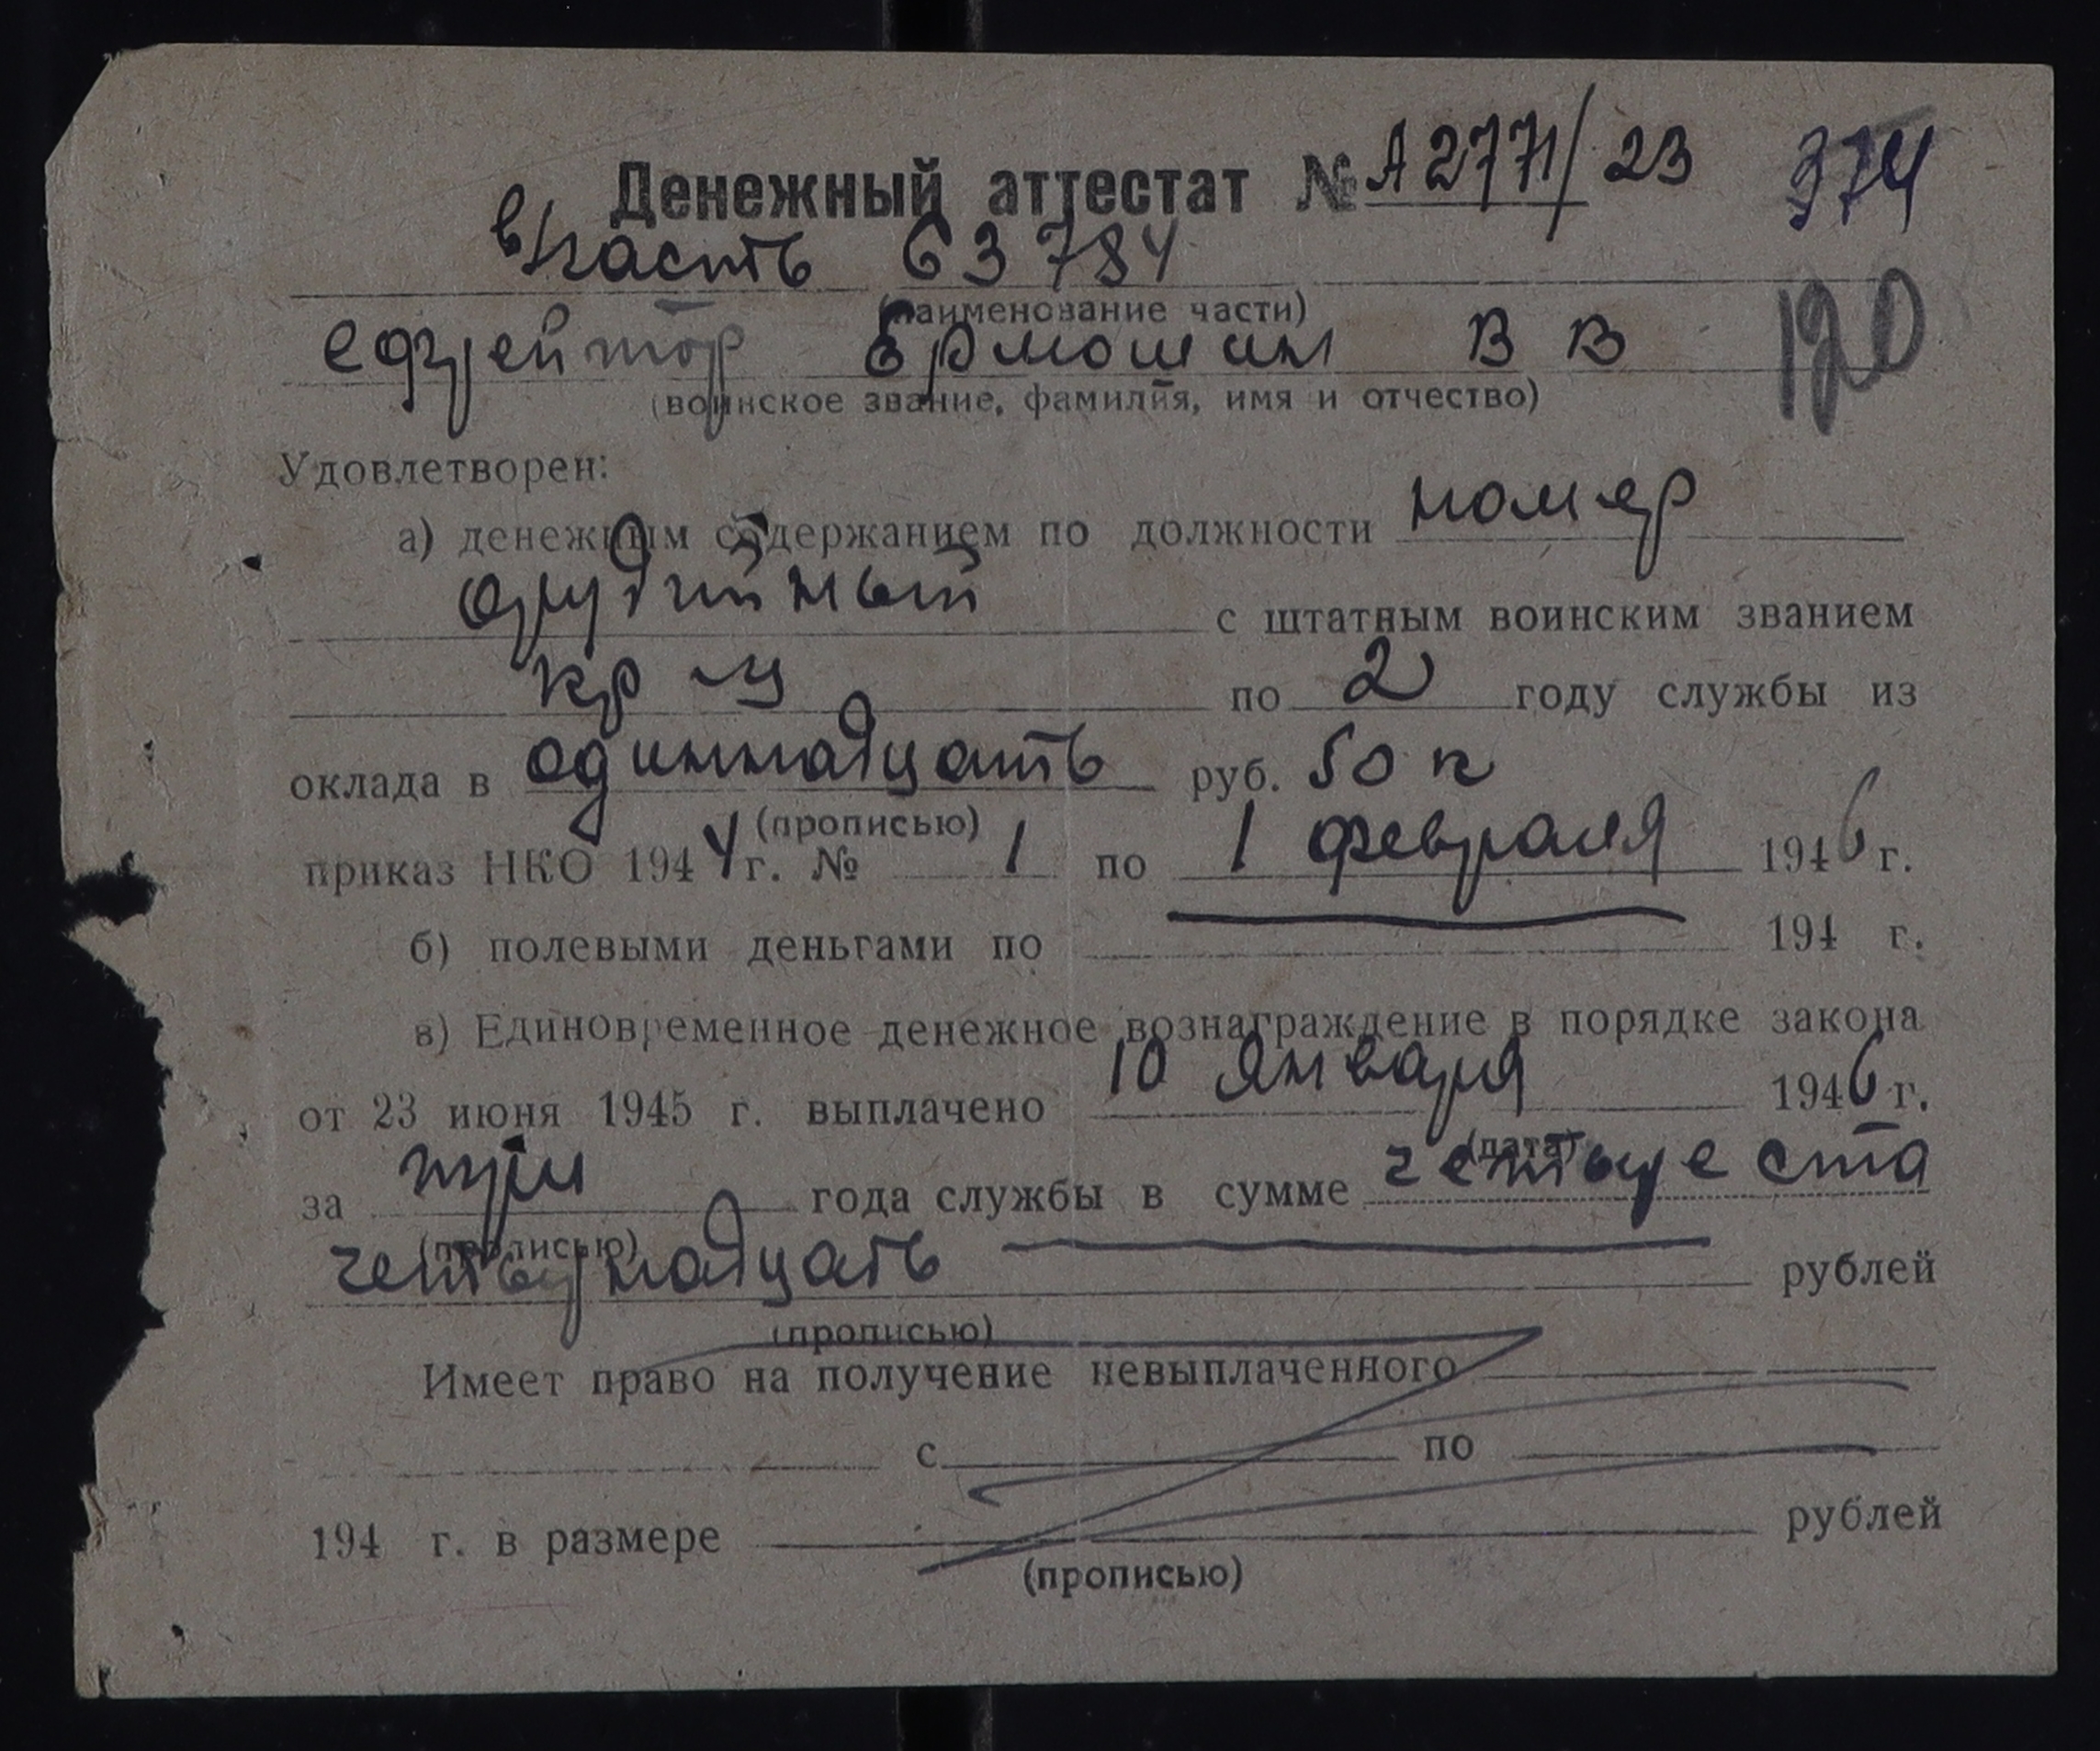 Денежный аттестат № А 2771/23 374
в/часть 63784
(наименование части)
ефрейтор Ермошин В В 120
(воинское звание, фамилия, имя и отчество)
Удовлетворен:
а) денежным содержанием по должности номер
орудийный с штатным воинским званием
кр-ц по 2 году службы из
оклада в одиннадцать руб. 50 к
(прописью)
приказ НКО 1944 г. № 1 по 1 февраля 1946 г.
б) полевыми деньгами по 194 г.
в) Единовременное денежное вознаграждение в порядке закона
от 23 июня 1945 г. выплачено 10 января 1946 г.
(дата)
за три года службы в сумме четыреста
(прописью)
четырнадцать рублей
(прописью)
Имеет право на получение невыплаченного
с по
194 г. в размере рублей
(прописью)